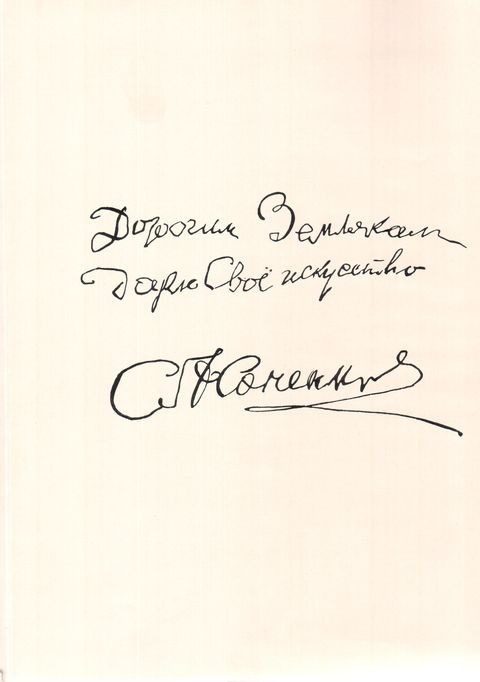 Дорогим Землякам
Дарю Своё искусство
С Конёнков